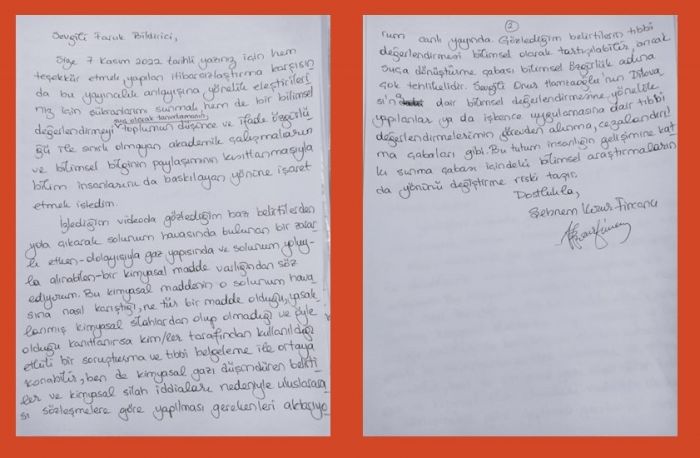 Sevgili Faruk Bildirici,
Size 7 Kasım 2022 tarihli yazınız için hem
teşekkür etmek, yapılan itibarsızlaştırma karşısın
da bu yayıncılık anlayışına yönelik eleştirileri
niz için şükranlarımı sunmak, hem de bir bilimsel
suç olarak tanımlamanın,
değerlendirmeyi toplumun düşünce ve ifade özgürlü
ğü ile sınırlı olmayan akademik çalışmaların
ve bilimsel bilginin paylaşımının kısıtlanmasıyla
bilim insanlarını da baskılayan yönüne işaret
etmek istedim.
İzlediğim videoda gözlediğim bazı belirtilerden
yola çıkarak solunum havasında bulunan bir zarar-
lı etken-dolayısıyla gaz yapısında ve solunum yoluy-
la alınabilen-bir kimyasal madde varlığından söz
ediyorum. Bu kimyasal maddenin o solunum hava
sına nasıl karıştığı, ne tür bir madde olduğu, yasak
lanmış kimyasal silahlardan olup olmadığı ve öyle
olduğu kanıtlanırsa kim/ler tarafından kullanıldığı
etkili bir soruşturma ve tıbbi belgeleme ile ortaya
konabilir, ben de kimyasal gazı düşündüren belirti-
ler ve kimyasal silah iddiaları nedeniyle uluslarara
sı sözleşmelere göre yapılması gerekenleri aktarıyo
2
rum canlı yayında. Gözlediğim belirtilerin tıbbi
değerlendirmesi bilimsel olarak tartışılabilir, ancak
suça dönüştürme çabası bilimsel özgürlük adına
çok tehlikelidir. Sevgili Onur Hamzaoğlu'nun Dilova
sı'na dair bilimsel değerlendirmesine yönelik
yapılanlar ya da işkence uygulamasına dair tıbbi
değerlendirmelerimin görevden alınma, cezalandırıl
ma çabaları gibi. Bu tutum insanlığın gelişimine kat
kı sunma çabası içindeki bilimsel araştırmaların
da yönünü değiştirme riski taşır.
Dostlukla,
Şebnem Korur Fincancı